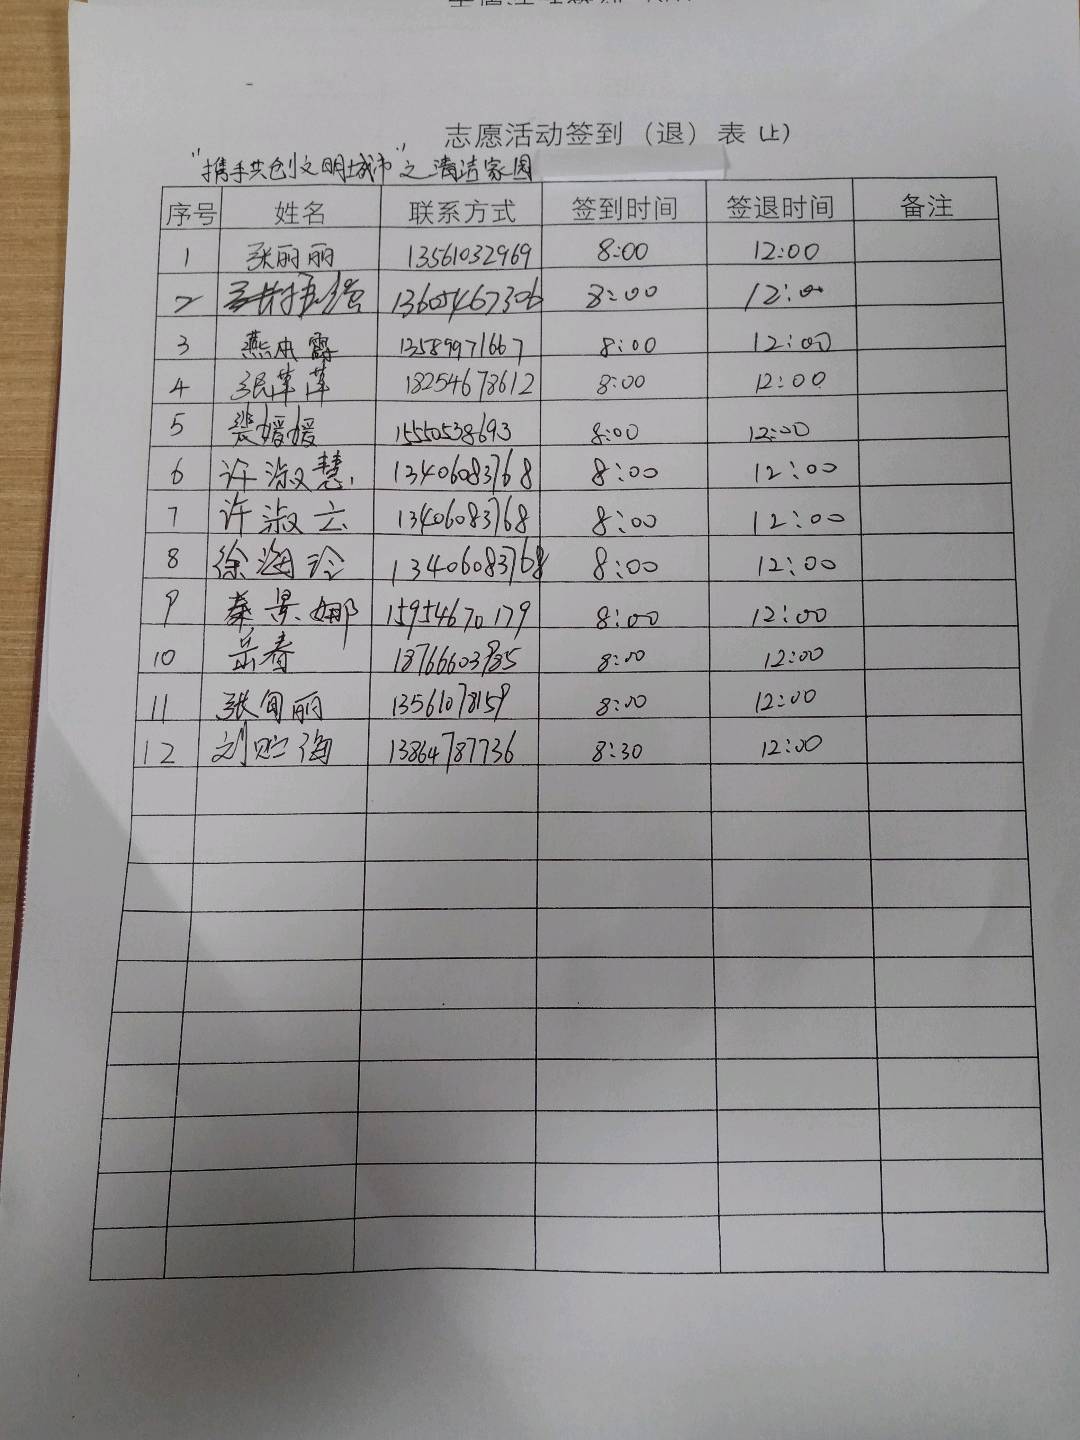 志愿活动签到（退）表（上）
“携手共创文明城市”之清洁家园
序号 姓名 联系方式 签到时间 签退时间 备注
1 张丽丽 13561032969 8:00 12:00
2 13605467306 8:00 12:00
3 燕本霞 13589971667 8:00 12:00
4 张萍萍 18254678612 8:00 12:00
5 裴媛媛 15550538693 8:00 12:00
6 许淑慧 13406083768 8:00 12:00
7 许淑云 13406083768 8:00 12:00
8 徐海玲 13406083768 8:00 12:00
9 秦景娜 15954670179 8:00 12:00
10 岳春 18766603985 8:00 12:00
11 张旬丽 13561078159 8:00 12:00
12 刘海 13864787736 8:30 12:00